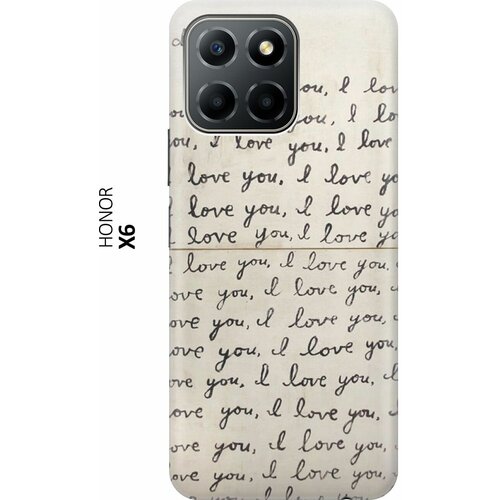 HONOR
X6
ou, I lov
ou, I lo
ou, I love you, I love
love you, I love yo
I love you, I love yo
I love you, I love ya
I love you, I love you,
ove you, I love you,
ove you, I love you, I
ove you, I love you,
ove you, I love you, I
ove you, I love you, I
love you, I love you,
love you, I love you,